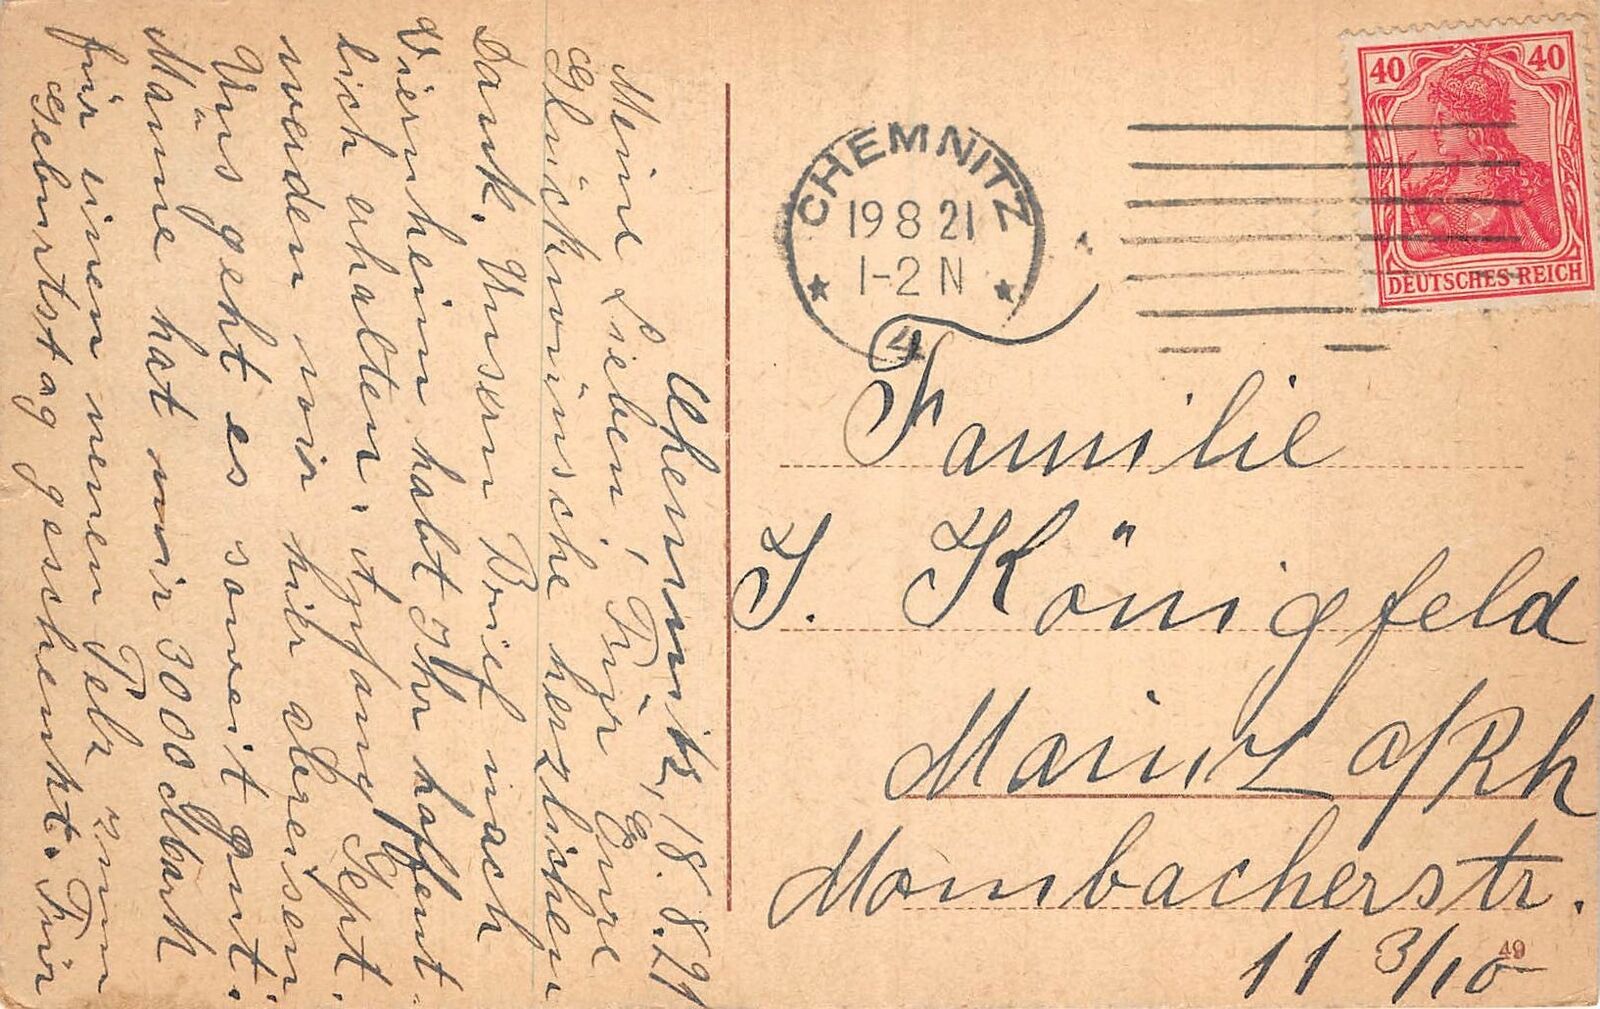 Chemnitz, 18. 8. 21
Meine Lieben! Für Eure
Glückwünsche herzlichen
Dank. Unsern Brief nach
Viernheim habt Ihr hoffent-
lich erhalten. Anfang Sept.
werden wir hier abreisen.
Uns geht es soweit gut.
Männe hat mir 3000 Mark
für einen neuen Pelz zum
Geburtstag geschenkt. Für
CHEMNITZ
19 8 21
1-2 N
4
40 40
DEUTSCHES REICH
Familie
J. Königfeld
Mainz a/Rh
Mombacherstr.
11 3/10
49